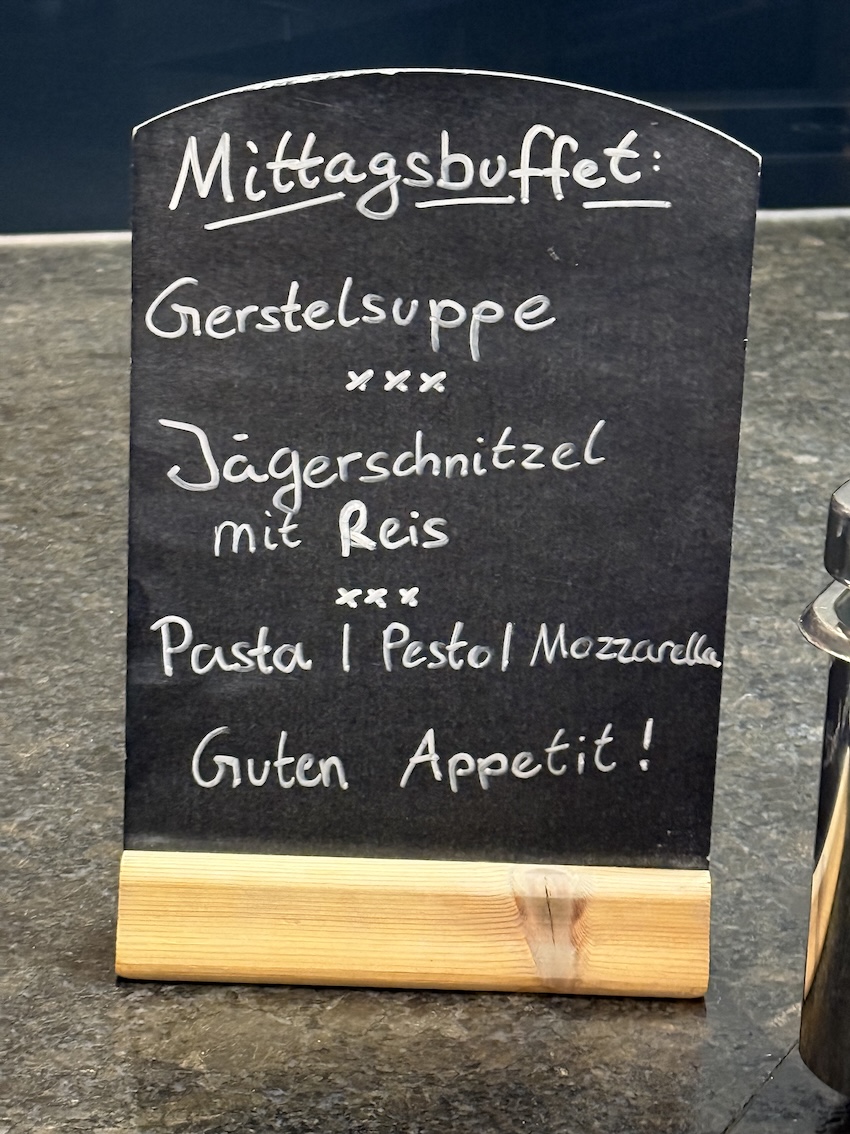 Mittagsbuffet:
Gerstelsuppe
xxx
Jägerschnitzel
mit Reis
xxx
Pasta | Pesto | Mozzarella
Guten Appetit!